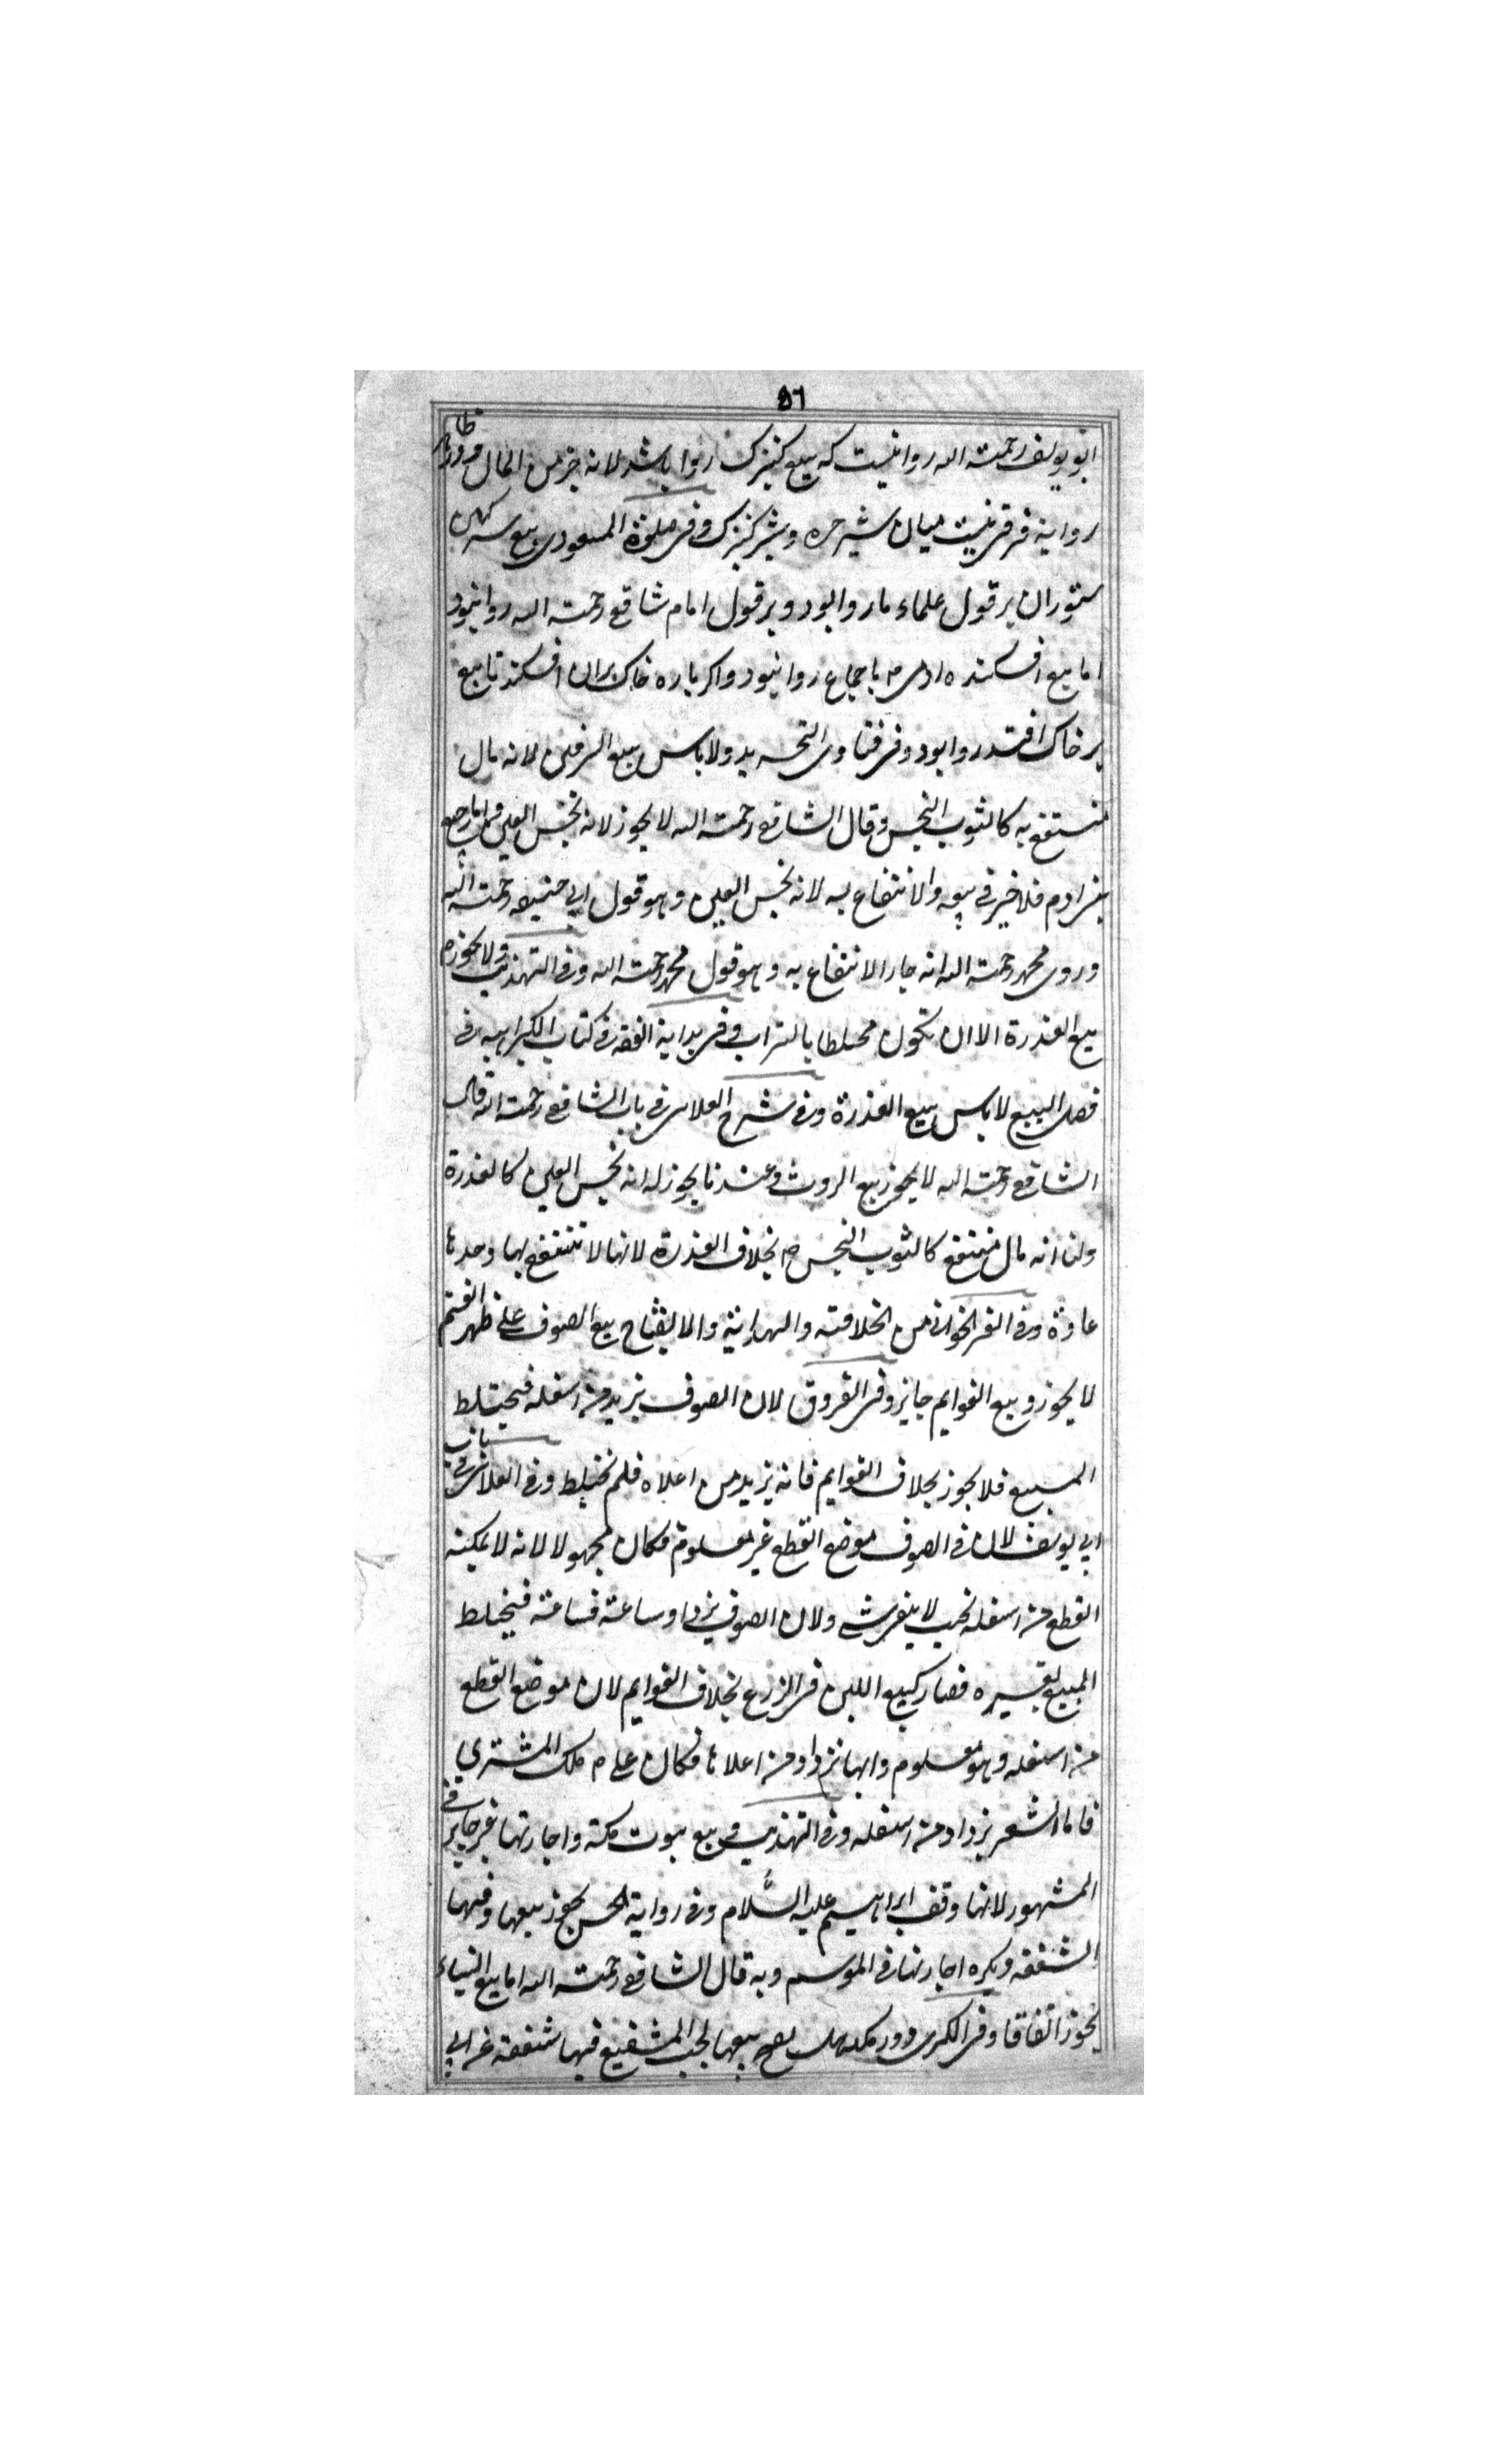 ٥٦
ابو یوسف رحمته الله روانیست که بیع کنیزک روا باشد لانه جزء من المال و در ظاهر
روایة فرق نیست میان شیر حره و شیر کنیزک و فی صلوة المسعودی بیع سرکین
ستوران بر قول علماء ما روا بود و بر قول امام شافعی رحمته الله روا نبود
اما بیع افکنده ادمی باجماع روا نبود و اکر پاره خاک بران افکند تا بیع
بر خاک افتد روا بود و فی فتاوی ولا باس ببیع السرقین لانه مال
منتفع به کالثوب النجس و قال الشافعی رحمته الله لا یجوز لانه نجس العین
فلا خیر فی بیعه والانتفاع به لانه نجس العین وهو قول ابی حنیفه رحمته الله
وروی محمد رحمته الله انه جاز الانتفاع به وهو قول محمد رحمته الله وفی التهذیب ولا یجوز
بیع العذرة الا ان تکون مختلطا بالتراب وفی بدایة الفقه فی کتاب الکراهیه فی
فصل البیع لاباس ببیع العذرة وفی شرح العلای فی باب الشافعی رحمته الله قال
الشافعی رحمته الله لا یجوز بیع الروث وعندنا یجوز له انه نجس العین کالعذرة
ولنا انه مال منتفع کالثوب النجس بخلاف العذرة لانها لا تنتفع بها وحدها
عادة وفی من الخلافته والهدایة والایضاح بیع الصوف علی ظهر الغنم
لا یجوز و بیع القوایم جایز وفی الفروق لان الصوف یزید من اسفله فیختلط
المبیع فلا یجوز بخلاف القوایم فانه یزید من اعلاه فلم یختلط وفی العلای فی باب
ابی یوسف لان فی الصوف موضع القطع غیر معلوم فکان مجهولا لانه لا یمکنه
القطع من اسفله ولان الصوف یزداد ساعة فساعة فیختلط
المبیع بغیره فصار کبیع اللبن فی الزرع بخلاف القوایم لان موضع القطع
من اسفله وهو معلوم وانها تزداد من اعلاها فکان علی ملک المشتری
فاما الشعر یزداد من اسفله وفی التهذیب و بیع بیوت مکة واجارتها غیر جایز فی
المشهور لانها وقف ابراهیم علیه السلام وفی روایة الحسن یجوز بیعها وفیها
الشفعه ویکره اجارتها فی الموسم وبه قال الشافعی رحمته الله اما بیع البناء
یجوز اتفاقا وفی الکبری دور مکه هل یصح بیعها فیها شفعة عن ابی